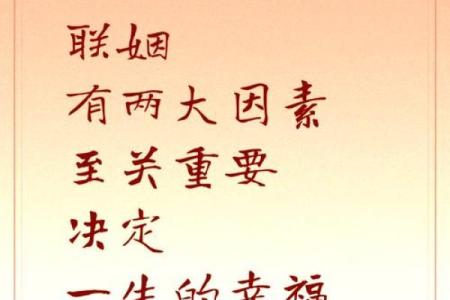 联姻
有两大因素
至关重要
决定
一生的幸福